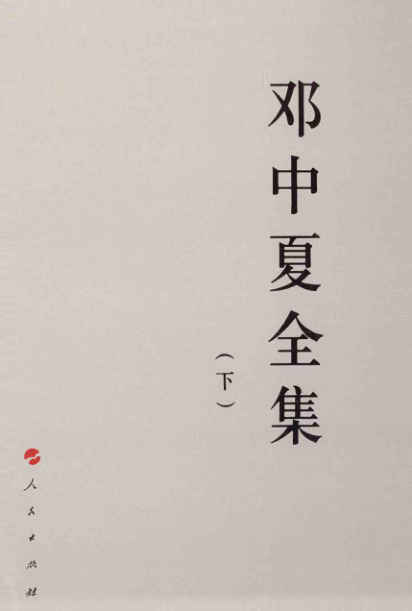 邓中夏全集
（下）
人民出版社